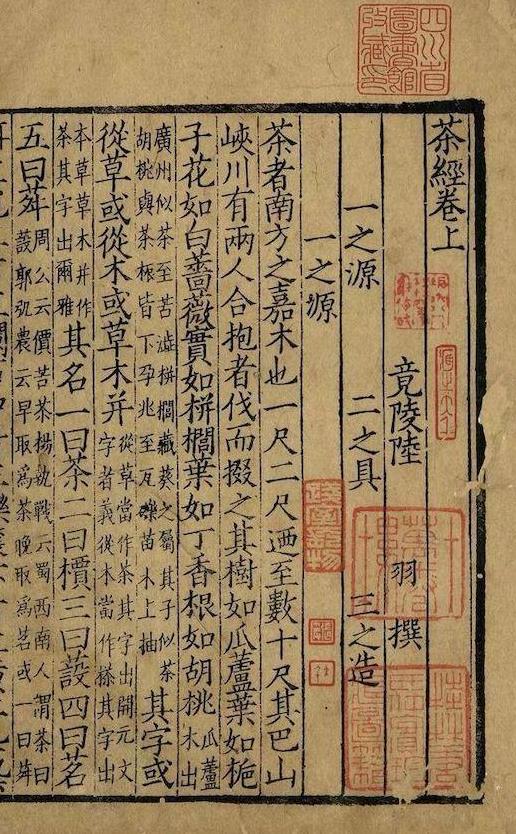 四川省
圖書館
收藏印
茶經卷上
竟陵陸 羽 撰
一之源 二之具 三之造
一之源
茶者南方之嘉木也一尺二尺迺至數十尺其巴山
峽川有兩人合抱者伐而掇之其樹如瓜蘆葉如梔
子花如白薔薇實如栟櫚葉如丁香根如胡桃瓜蘆木出
廣州似茶至苦澁栟櫚藏葵之屬其子似茶
胡桃與茶根皆下孕兆至瓦礫苗木上抽其字或
從草或從木或草木并從草當作茶其字出開元文
字者義從木當作搽其字出
本草草木并作
茶其字出爾雅其名一曰茶二曰檟三曰蔎四曰茗
五曰荈周公云價苦茶楊執戟云蜀西南人謂茶曰
蔎郭弘農云早取爲茶晚取爲茗或一曰荈